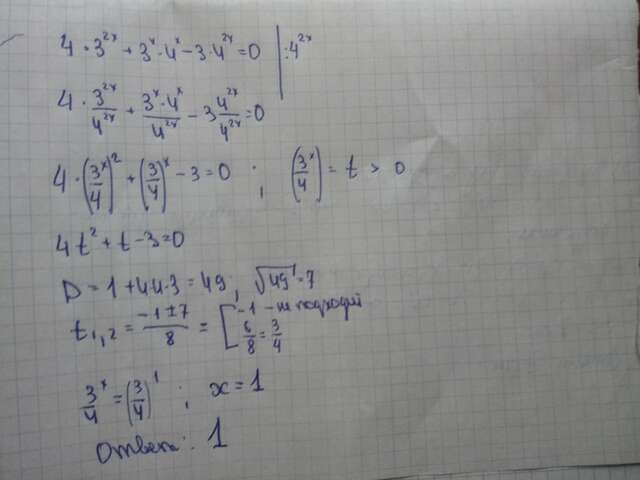 4 · 3^{2x} + 3^x · 4^x − 3 · 4^{2x} = 0 | : 4^{2x}
4 · 3^{2x}/4^{2x} + 3^x · 4^x/4^{2x} − 3 4^{2x}/4^{2x} = 0
4 · (3^x/4)^2 + (3/4)^x − 3 = 0 ; (3^x/4) = t > 0
4t² + t − 3 = 0
D = 1 + 4·4·3 = 49; √49 = 7
t₁,₂ = (−1 ± 7)/8 = [ −1 – не подходит
6/8 = 3/4
3^x/4 = (3/4)^1 ; x = 1
Ответ: 1